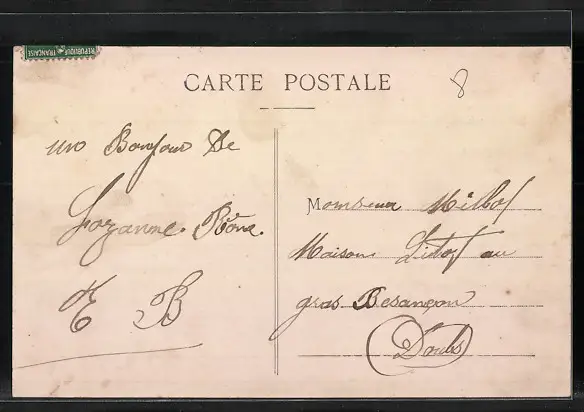 REPUBLIQUE FRANÇAISE
CARTE POSTALE
8
un Bonjour De
Lozanne. Rône.
E B
Monsieur Millot
Maison Litot au
gras Besançon
Doubs